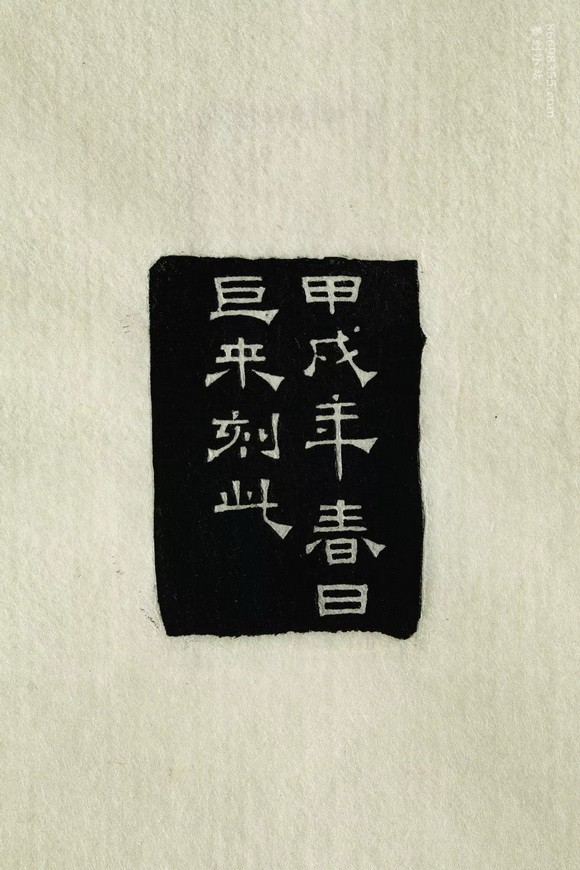 甲戌年春日
巨来刻此